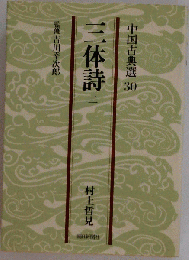 中国古典選 30
三体詩 一
監修 吉川幸次郎
村上哲見